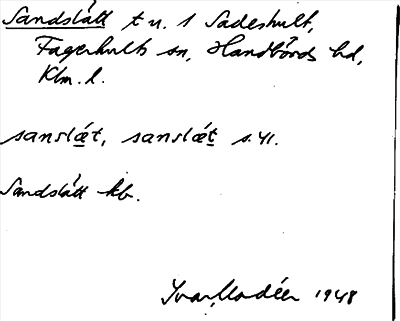 Sandslätt t u. 1 Sadeshult,
Fagerhults sn, Handbörds hd,
Klm. l.
sanslæt, sanslæt s. 41.
Sandslätt kb.
Ivar Modéer 1948